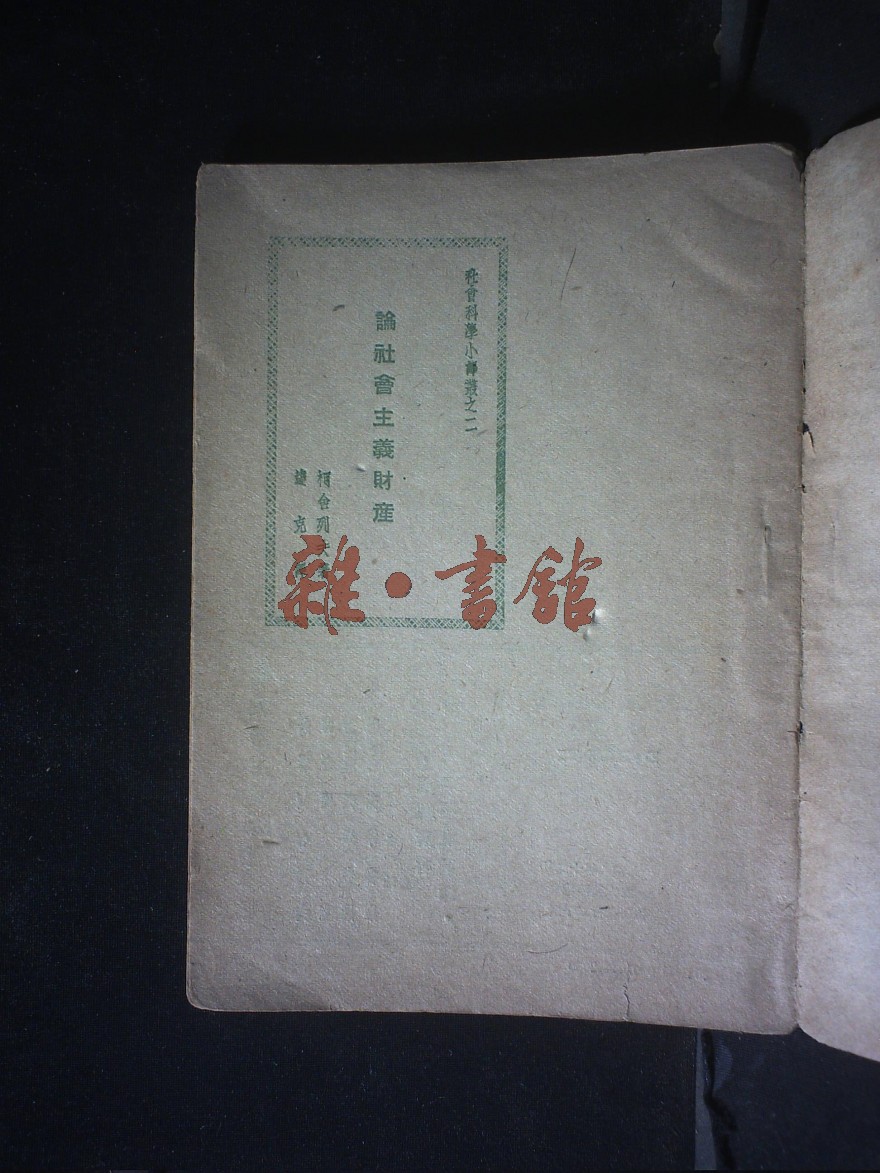 社會科學小譯叢之二
論社會主義財產
柯舍列夫
捷克
雜·書館